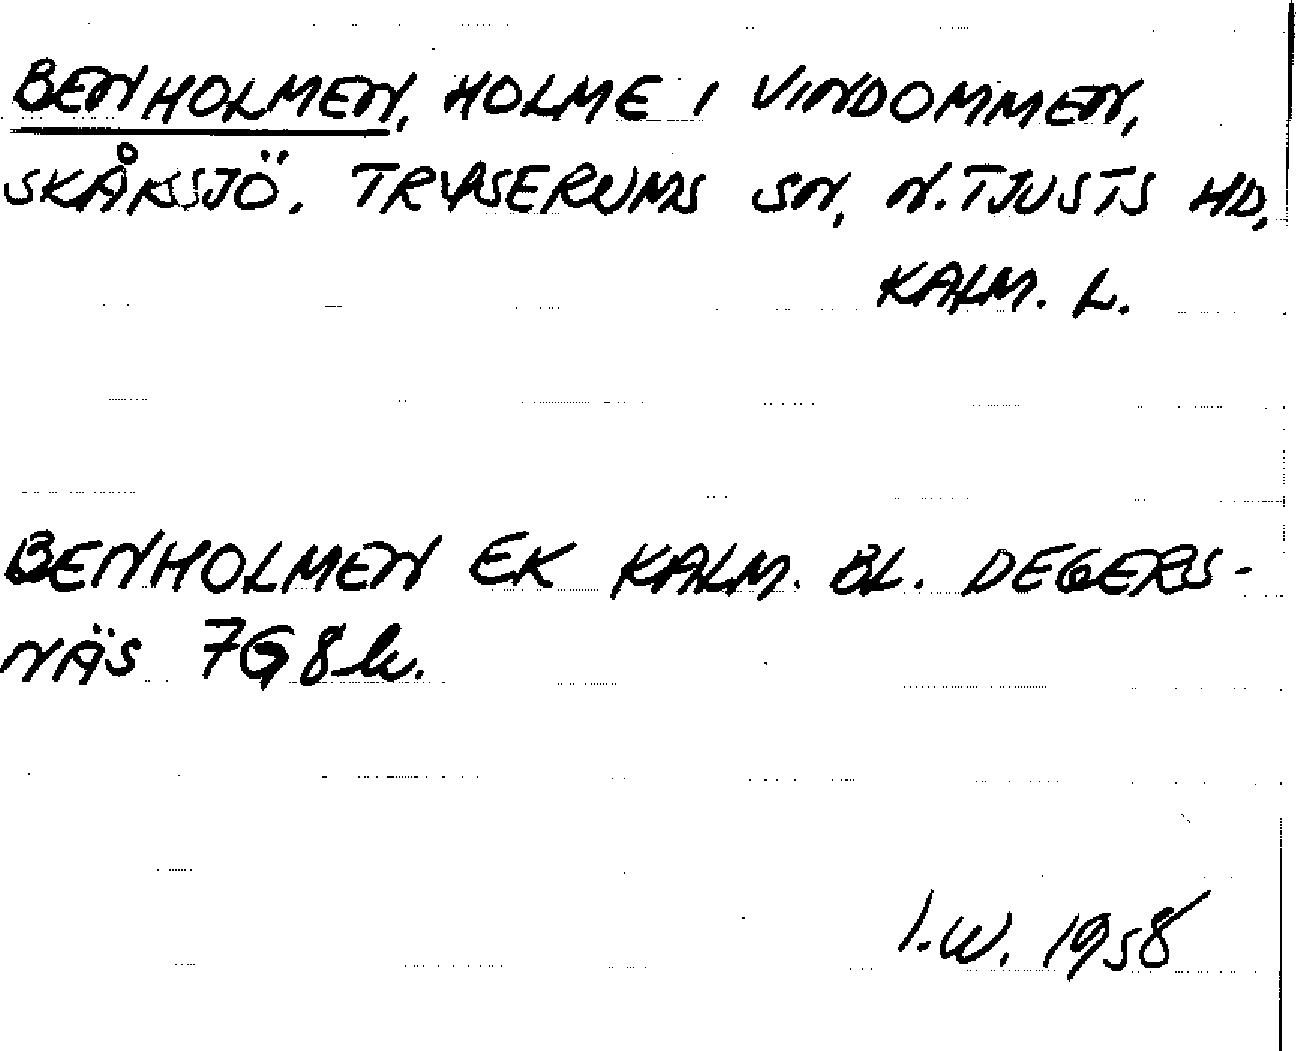 BENHOLMEN, HOLME I VINDOMMEN,
SKÅKSJÖ, TRYSERUMS SN, N. TJUSTS HD,
KALM. L.
BENHOLMEN EK KALM. BL. DEGERS-
NÄS 7G8h.
I.W. 1958